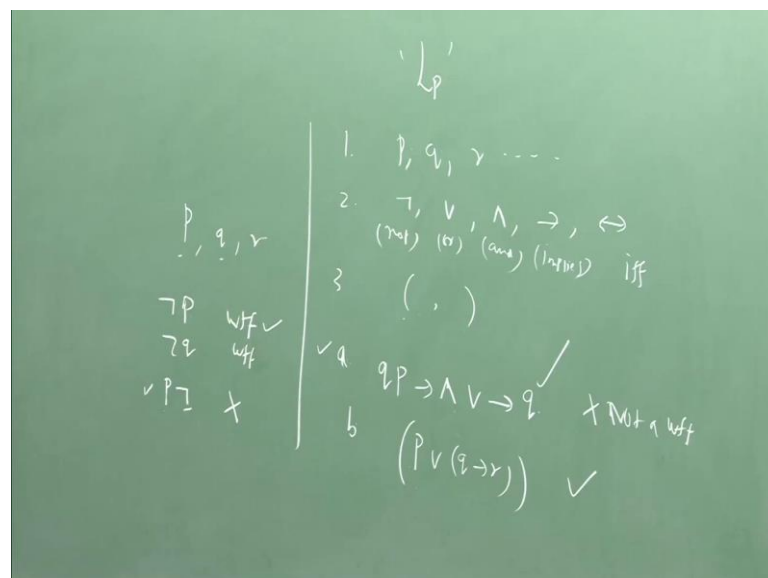 'Lp'
P, q, r
¬P wff ✓
¬q wff
✓ P¬ X
1. P, q, r .....
2. ¬, ∨, ∧, →, ↔
(not) (or) (and) (implies) iff
3 ( , )
✓ a qP → ∧ ∨ → q ✓ X Not a wff
b (P ∨ (q → r)) ✓